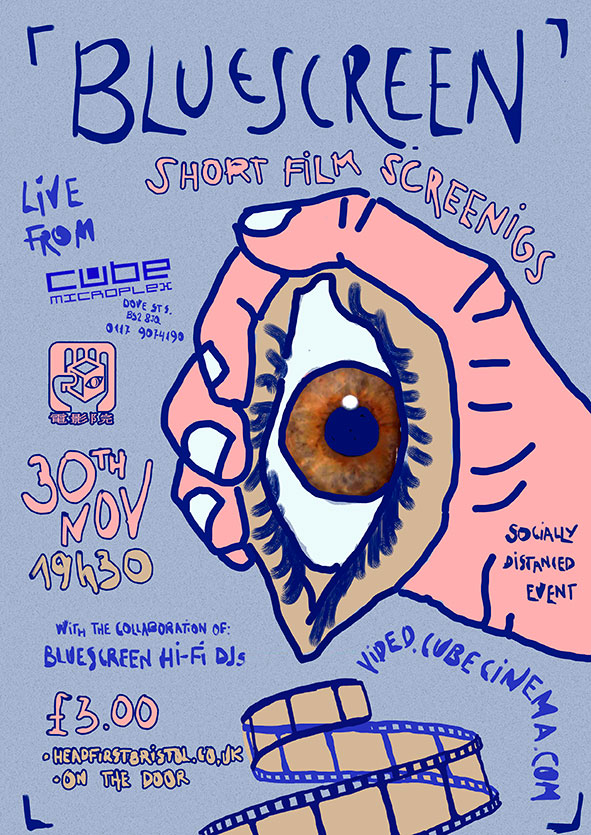 BLUESCREEN
SHORT FILM SCREENIGS
LIVE
FROM
cube
MICROPLEX
DOVE ST S.
BS2 8JD
0117 9074190
電影院
30TH
NOV
19h30
SOCIALLY
DISTANCED
EVENT
WITH THE COLLABORATION OF:
BLUESCREEN Hi-Fi DJs
VIDEO.CUBECINEMA.COM
£3.00
• HEADFIRSTBRISTOL.CO.UK
• ON THE DOOR